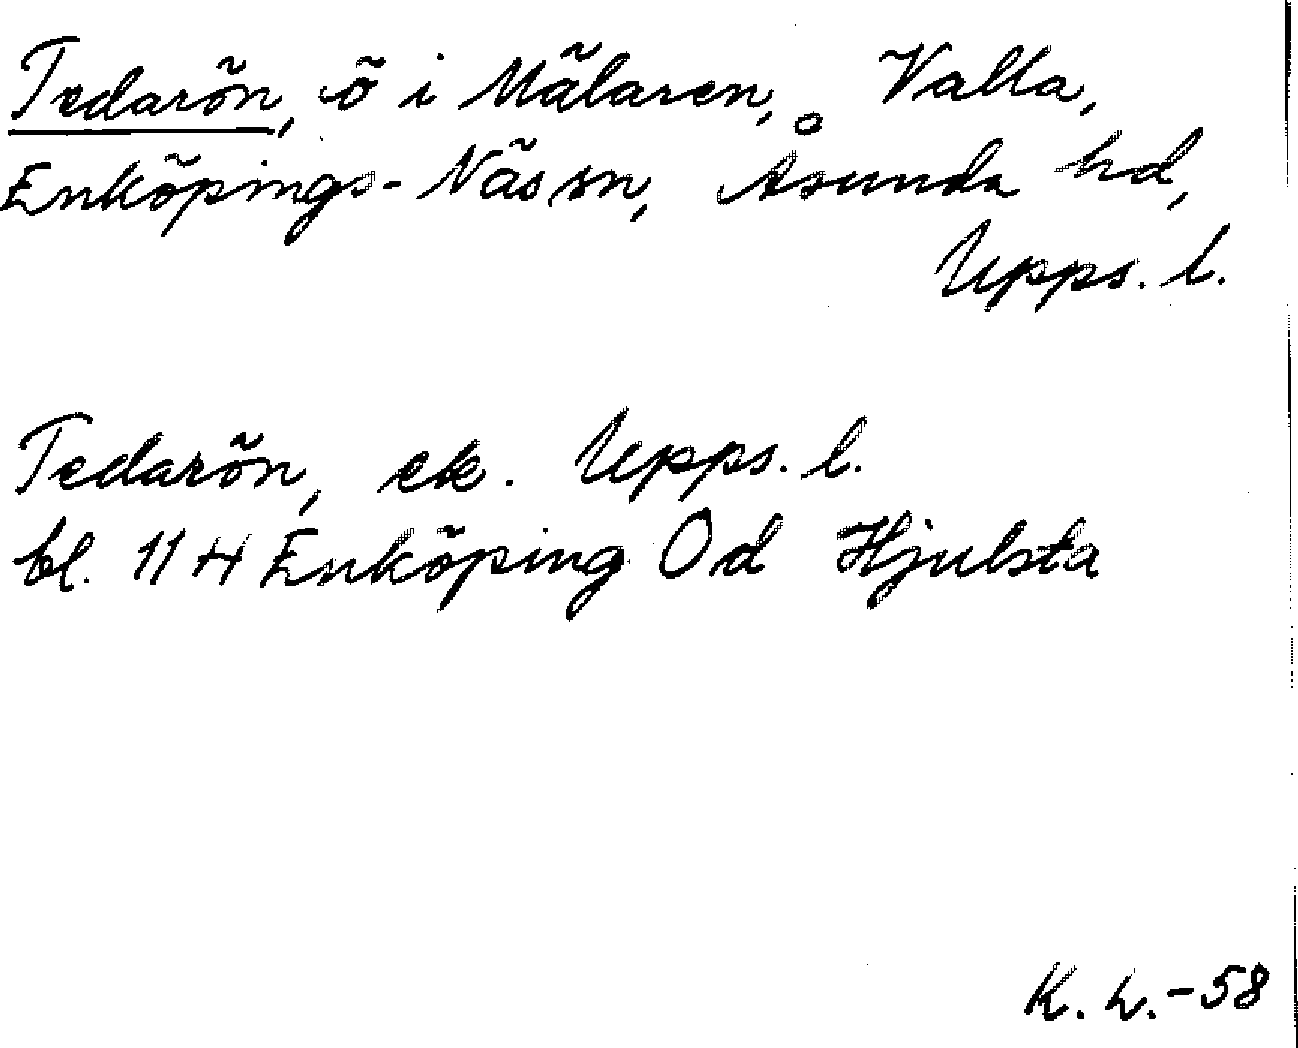 Tedarön, ö i Mälaren, Valla,
Enköpings-Näs sn, Åsunda hd,
Upps. l.
Tedarön, ek. Upps. l.
bl. 11 H Enköping Od Hjulsta
K. L. -58